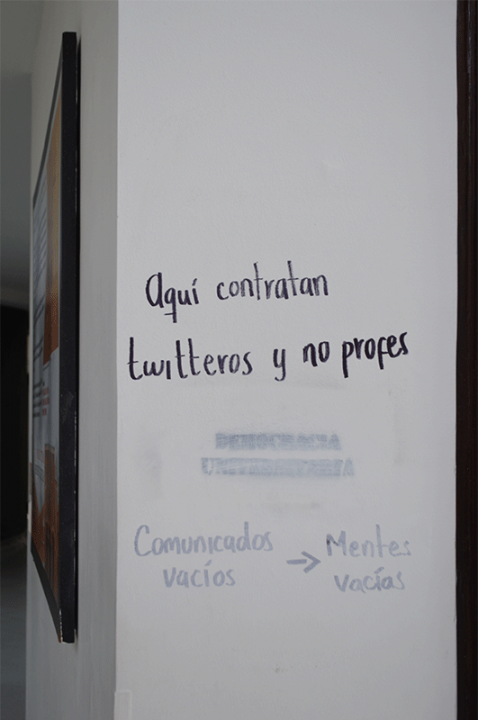 Aquí contratan
twitteros y no profes
DEMOCRACIA
UNIVERSITARIA
Comunicados → Mentes
vacíos vacías